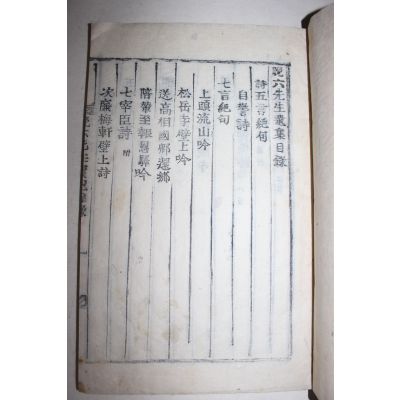 晩六先生遺集目錄
詩五言絕句
自警詩
七言絕句
上頭流山吟
松岳寺壁上吟
送高相國還鄕
陪至報恩驛吟
七宰臣詩 附
次廉梅軒壁上詩
一